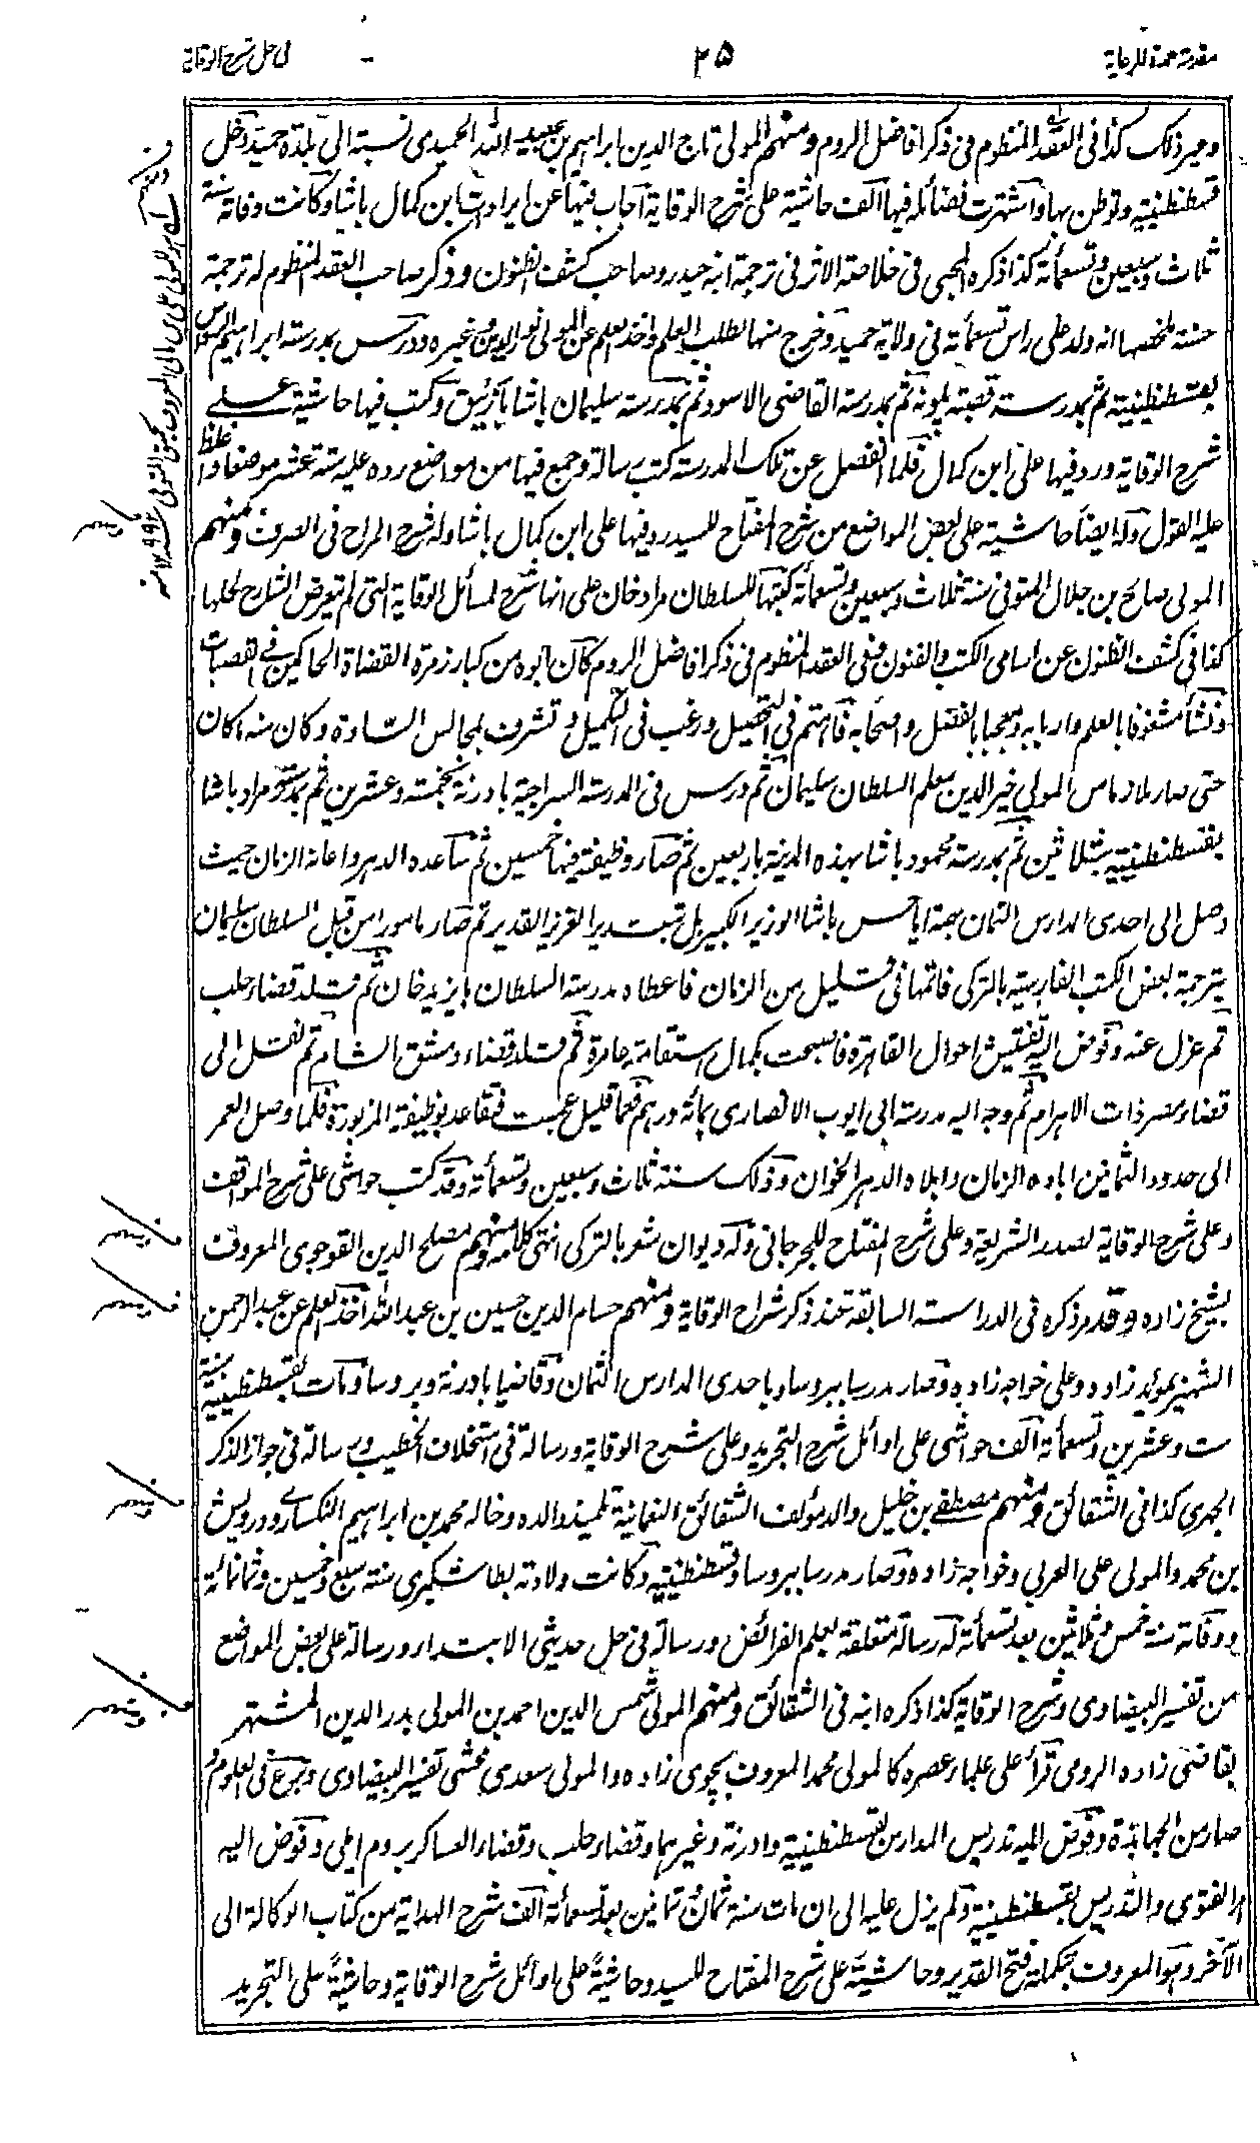 مقدمة عمدة الرعاية
٢٥
فى حل شرح الوقاية
وغير ذلك كذا فى العقد المنظوم فى ذكر افاضل الروم ومنهم المولى تاج الدين ابراهيم بن عبيد الله الحميدى نسبة الى بلدة حميد دخل
قسطنطينية وتوطن بها واشتهرت فضائله فيها الف حاشية على شرح الوقاية اجاب فيها عن ايرادات ابن كمال باشا وكانت وفاته سنة
ثلاث وسبعين وتسعمأة كذا ذكره المحبى فى خلاصة الاثر فى ترجمة ابنه حيدر وصاحب كشف الظنون وذكر صاحب العقد المنظوم له ترجمة
حسنة ملخصها انه ولد على راس تسعمأة فى ولاية حميد وخرج منها لطلب العلم واخذ العلم عن المولى نور الدين وغيره ودرس بمدرسة ابراهيم الرواس
بقسطنطينية ثم بمدرسة قصبته بلونة ثم بمدرسة القاضى الاسود ثم بمدرسة سليمان باشا بازنيق وكتب فيها حاشية على
شرح الوقاية ورد فيها على ابن كمال فلما انفصل عن تلك المدرسة كتب رسالة وجمع فيها من مواضع رده عليه ستة عشر موضعا واغلظ
عليه القول وله ايضا حاشية على بعض المواضع من شرح المفتاح للسيد رد فيها على ابن كمال باشا وله شرح المراح فى الصرف ومنهم
المولى صالح بن جلال المتوفى سنة ثلاث وسبعين وتسعمأة كتبها للسلطان مراد خان على انها شرح لمسائل الوقاية التى لم يتعرض الشارح لحلها
كذا فى كشف الظنون عن اسامى الكتب والفنون وفى العقد المنظوم فى ذكر افاضل الروم كان ابوه من كبار زمرة القضاة الحاكمين فى القصبات
ونشأ مشغوفا بالعلم واربابه ومحبا بالفضل واصحابه فاهتم فى التحصيل ورغب فى التكميل وتشرف بمجالس السادة وكان منه ما كان
حتى صار ملازما من المولى خير الدين معلم السلطان سليمان ثم درس فى المدرسة السراجية بادرنة بخمسة وعشرين ثم بمدرسة مراد باشا
بقسطنطينية بثلاثين ثم بمدرسة محمود باشا بهذه المدينة باربعين ثم صار وظيفته فيها خمسين ثم ساعده الدهر واعانه الزمان حيث
وصل الى احدى المدارس الثمان بهمة اياس باشا الوزير الكبير بل بتقدير العزيز القدير ثم صار مامورا من قبل السلطان سليمان
بترجمة بعض الكتب الفارسية بالتركى فاتمها فى قليل من الزمان فاعطاه مدرسة السلطان بايزيد خان ثم قلد قضاء حلب
ثم عزل عنه وفوض اليه تفتيش احوال القاهرة فاصبحت بكمال استقامته عامرة ثم قلد قضاء دمشق الشام ثم نقل الى
قضاء مصر ذات الاهرام ثم وجه اليه مدرسة ابى ايوب الانصارى بمأة درهم فعما قليل عميت فتقاعد بوظيفة المزبورة فلما وصل العمر
الى حدود الثمانين اباده الزمان وابلاه الدهر الخوان وذلك سنة ثلاث وسبعين وتسعمأة وقد كتب حواشى على شرح المواقف
وعلى شرح الوقاية لصدر الشريعة وعلى شرح المفتاح للجرجانى وله ديوان شعر بالتركى انتهى كلامه ومنهم مصلح الدين القوجوى المعروف
بشيخ زاده وقد مر ذكره فى الدراسة السابقة عند ذكر شراح الوقاية ومنهم حسام الدين حسين بن عبد الله اخذ العلم عن عبد الرحمن
الشهير بمؤيد زاده وعلى خواجه زاده وصار مدرسا ببروسا وباحدى المدارس الثمان وقاضيا بادرنة وبروسا ومات بقسطنطينية سنة
ست وعشرين وتسعمأة الف حواشى على اوائل شرح التجريد وعلى شرح الوقاية ورسالة فى استخلاف الخطيب ورسالة فى جواز الذكر
الجهرى كذا فى الشقائق ومنهم مصطفى بن خليل والد مؤلف الشقائق النعمانية تلميذ والده وخاله محمد بن ابراهيم النكسارى ودرويش
بن محمد والمولى على العربى وخواجه زاده وصار مدرسا ببروسا وقسطنطينية وكانت ولادته بطاشكبرى سنة سبع وخمسين وثمانمائة
ووفاته سنة خمس وثلاثين بعد تسعمأة له رسالة متعلقة بعلم الفرائض ورسالة فى حل حديثى الابتداء ورسالة على بعض المواضع
من تفسير البيضاوى وشرح الوقاية كذا ذكره ابنه فى الشقائق ومنهم المولى شمس الدين احمد بن المولى بدر الدين المشتهر
بقاضى زاده الرومى قرأ على علماء عصره كالمولى محمد المعروف بچوى زاده والمولى سعدى محشى تفسير البيضاوى وبرع فى العلوم و
صار من الجهابذة وفوض اليه تدريس المدارس بقسطنطينية وادرنة وغيرهما وقضاء حلب وقضاء العساكر بروم ايلى وفوض اليه
امر الفتوى والتدريس بقسطنطينية ولم يزل عليه الى ان مات سنة ثمان وثمانين بعد تسعمأة الف شرح الهداية من كتاب الوكالة الى
الآخر وهو المعروف بتكملة فتح القدير وحاشية على شرح المفتاح للسيد وحاشية على اوائل شرح الوقاية وحاشية على التجريد